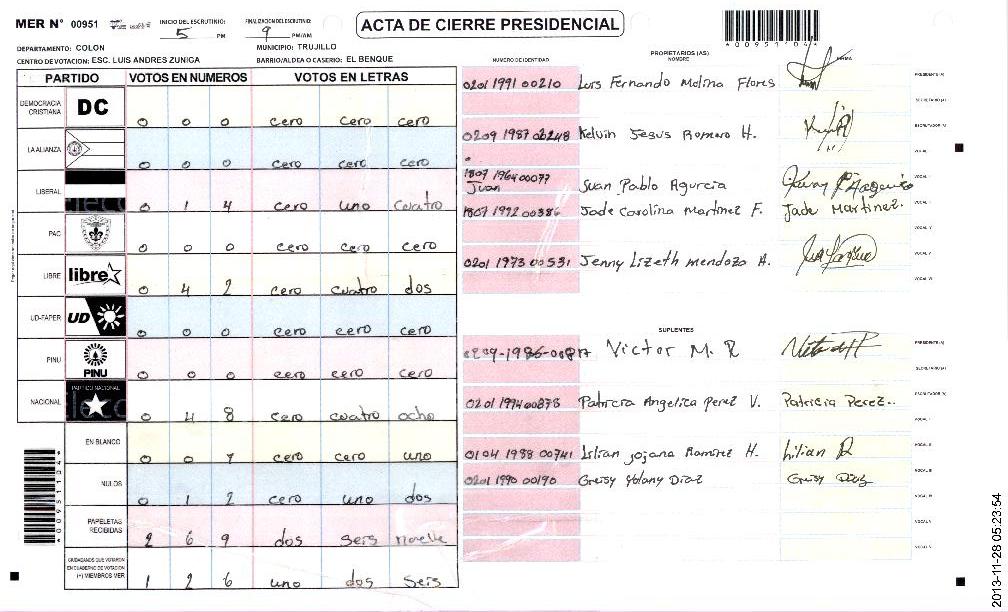 MER N° 00951
INICIO DEL ESCRUTINIO: 5 PM
FINALIZACION DEL ESCRUTINIO: 9 PM/AM
ACTA DE CIERRE PRESIDENCIAL
*00951104*
DEPARTAMENTO: COLON
MUNICIPIO: TRUJILLO
CENTRO DE VOTACION: ESC. LUIS ANDRES ZUNIGA
BARRIO/ALDEA O CASERIO: EL BENQUE
PARTIDO VOTOS EN NUMEROS VOTOS EN LETRAS
DEMOCRACIA CRISTIANA DC 0 0 0 cero cero cero
LA ALIANZA 0 0 0 cero cero cero
LIBERAL 0 1 4 cero uno cuatro
PAC 0 0 0 cero cero cero
LIBRE libre 0 4 2 cero cuatro dos
UD-FAPER UD 0 0 0 cero cero cero
PINU PINU 0 0 0 cero cero cero
NACIONAL PARTIDO NACIONAL 0 4 8 cero cuatro ocho
EN BLANCO 0 0 1 cero cero uno
NULOS 0 1 2 cero uno dos
PAPELETAS RECIBIDAS 2 6 9 dos seis
CIUDADANOS QUE VOTARON EN CUADERNO DE VOTACION (+) MIEMBROS MER 1 2 6 uno dos seis
NUMERO DE IDENTIDAD
PROPIETARIOS (AS)
NOMBRE
FIRMA
0201 1991 00210 Luis Fernando Molina Flores PRESIDENTE (A)
SECRETARIO (A)
0209 1987 02248 Kelvin Jesus Romero H. ESCRUTADOR (A)
VOCAL I
1807 1964 00077 Juan Pablo Agurcia
Juan
1807 1992 00386 Jade Carolina Martinez F. Jade Martinez.
0201 1973 00531 Jenny Lizeth Mendoza A.
SUPLENTES
Victor M. R PRESIDENTE (A)
SECRETARIO (A)
0201 1994 00878 Patricia Angelica Perez V. Patricia Perez.. ESCRUTADOR (A)
VOCAL I
0104 1988 00741 Lilian Jojana Ramirez H. Lilian R VOCAL II
0201 1990 00190 Greisy Yolany Diaz Greisy Diaz VOCAL III
*00951104*
2013-11-28 05:23:54